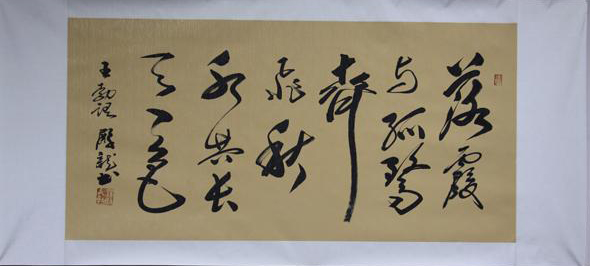 落霞
与孤鹜
齐
飞秋
水共长
天一色
王勃 龙书